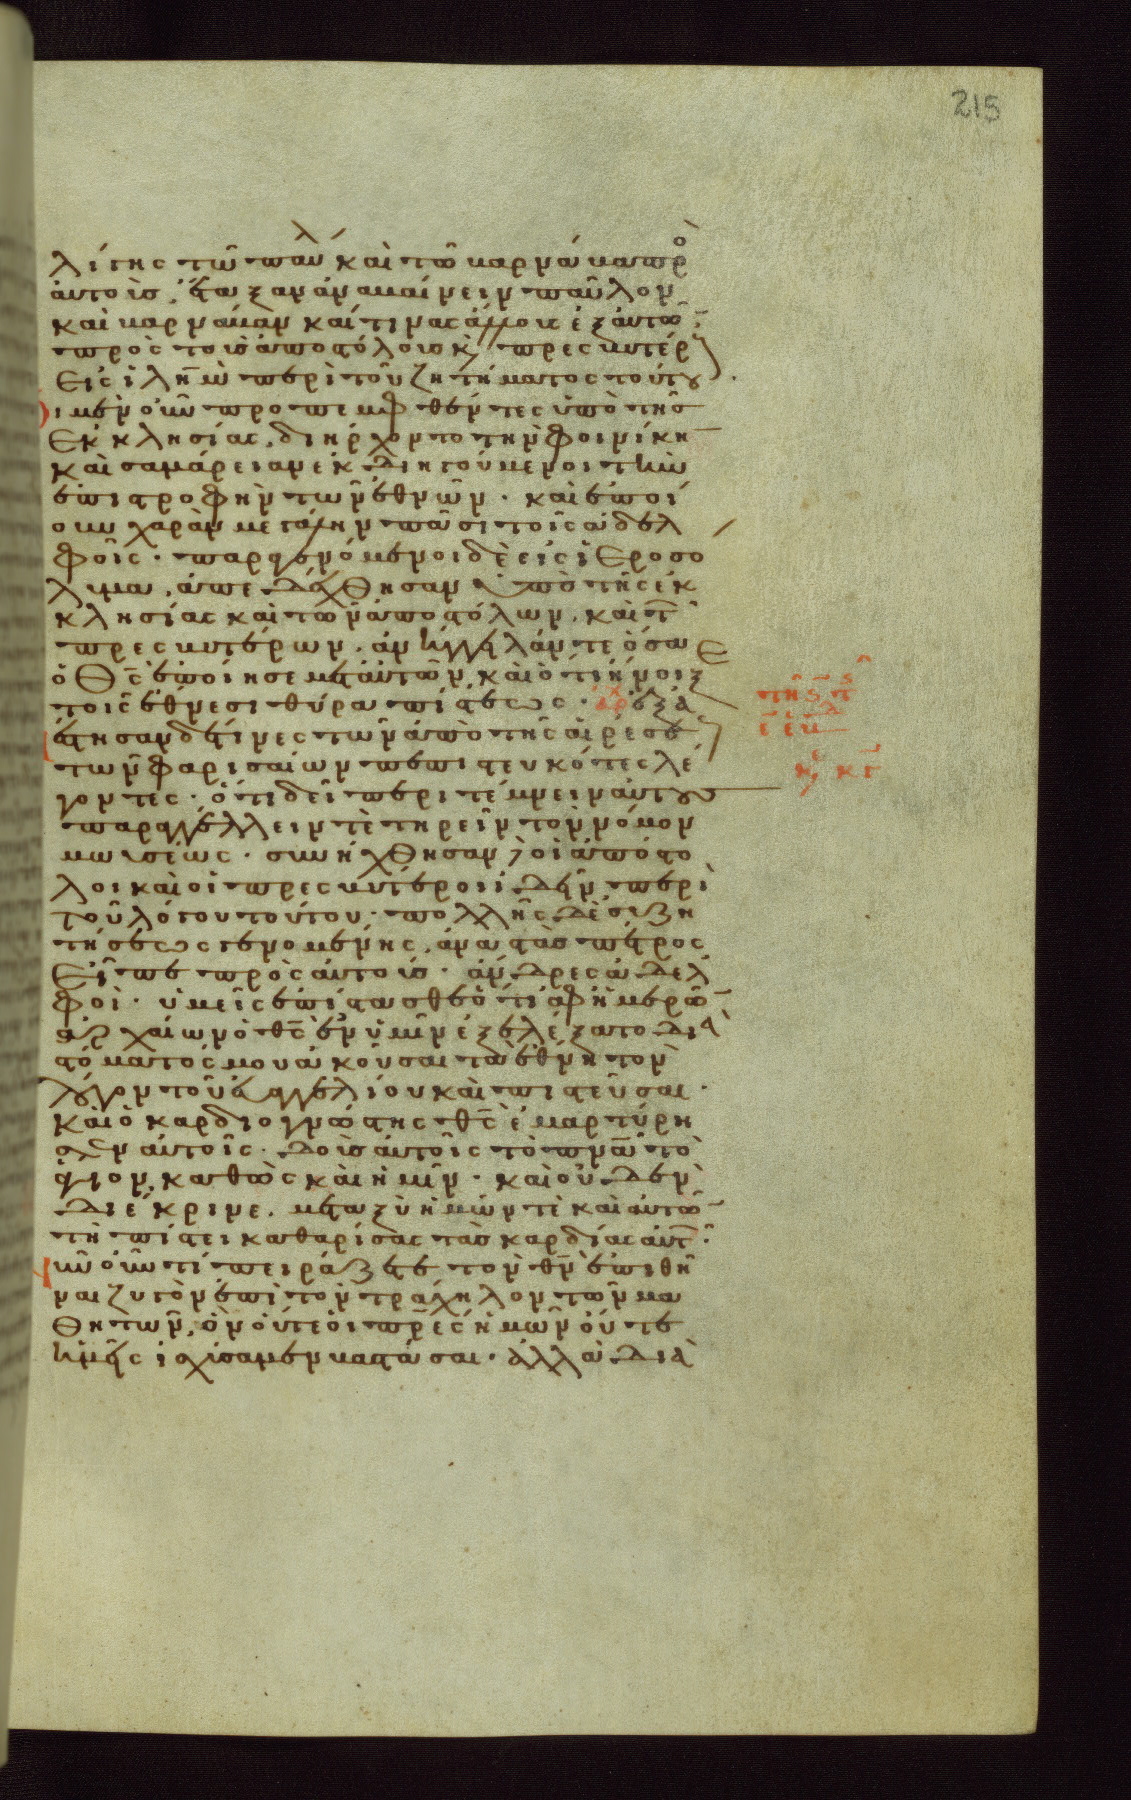 215
λίτης τῶ παύλ καὶ τῶ βαρνάβα πρὸ
αὐτοὺσ, ἔταξαν ἀναβαίνειν παῦλον
καὶ βαρνάβαν καί τινας ἄλλους ἐξ αὐτῶ
πρὸς τοὺσ ἀποστόλουσ κ πρεσβυτέρ
εἰς ἰλημ περὶ τοῦ ζητήματος τούτου.
οι μὲν οὖν προπεμφθέντες ὑπὸ τῆσ
ἐκκλησίας, διήρχοντο τὴν φοινίκη
καὶ σαμάρειαν ἐκδιηγούμενοι τὴν
ἐπιστροφὴν τῶν ἐθνῶν. καὶ ἐποί
ουν χαρὰν μεγάλην πᾶσι τοῖς ἀδελ
φοῖς. παραγενόμενοι δὲ εἰς ἱεροσο
λιμα, ἀπεδέχθησαν ὑπὸ τῆς ἐκ
κλησίας καὶ τῶν ἀποστόλων, καὶ τ
πρεσβυτέρων. ἀνήγγειλάν τε ὅσα
ὁ θς ἐποίησε μετ αὐτῶν, καὶ ὅτι ἤνοιξε
τοῖς ἔθνεσι θύραν πίστεως. ἀρ ἐξα
έστησαν δέ τινες τῶν ἀπὸ τῆς αἱρέσε
τῶν φαρισαίων πεπιστευκότες λέ
γοντες. ὅτι δεῖ περιτέμνειν αὐτοὺσ
παραγγέλλειν τὲ τηρεῖν τὸν νόμον
μωυσέως. συνήχθησαν δὲ οἱ ἀπόστο
λοι καὶ οἱ πρεσβύτεροι ἰδεῖν περὶ
τοῦ λόγου τούτου. πολλῆς δὲ συζη
τήσεως γενομένης, ἀναστὰσ πέτρος
εἶπε πρὸς αὐτούσ. ἄνδρες ἀδελ
φοὶ. ὑμεῖς ἐπίστασθε ὅτι ἀφ ἡμερῶ
ἀρχαίων ὁ θς ἐν ὑμῖν ἐξελέξατο διὰ
στόματός μου ἀκοῦσαι τὰ ἔθνη τὸν
λόγον τοῦ εὐαγγελίου καὶ πιστεῦσαι.
καὶ ὁ καρδιογνώστης θς ἐμαρτύρη
σεν αὐτοῖς. δοὺσ αὐτοῖς τὸ πνα τὸ
ἅγιον, καθὼς καὶ ἡμῖν. καὶ οὐδὲν
διέκρινε, μεταξὺ ἡμῶν τὲ καὶ αὐτῶ
τῆ πίστει καθαρίσας τὰσ καρδίας αὐτ.
νῦν οὖν τί πειράζετε τὸν θν ἐπιθῆ
ναι ζυγὸν ἐπὶ τὸν τράχηλον τῶν μα
θητῶν, ὃν οὔτε οἱ πρες ἡμῶν οὔτε
ἡμεῖς ἰσχύσαμεν βαστάσαι. ἀλλὰ διὰ